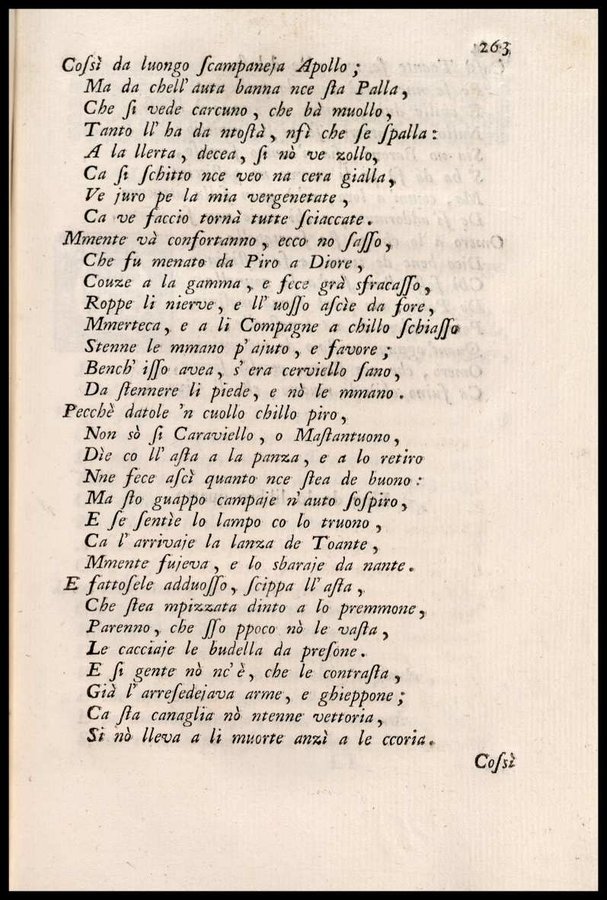 263
Cossì da luongo scampaneja Apollo;
Ma da chell' auta banna nce sta Palla,
Che si vede carcuno, che bà muollo,
Tanto ll' ha da ntostà, nsì che se spalla:
A la llerta, decea, si nò ve zollo,
Ca si schitto nce veo na cera gialla,
Ve juro pe la mia vergenetate,
Ca ve faccio tornà tutte sciaccate.
Mmente và confortanno, ecco no sasso,
Che fu menato da Piro a Diore,
Couze a la gamma, e fece grà sfracasso,
Roppe li nierve, e ll' uosso ascìe da fore,
Mmerteca, e a li Compagne a chillo schiasso
Stenne le mmano p' ajuto, e favore;
Bench' isso avea, s' era cerviello sano,
Da stennere li piede, e nò le mmano.
Pecchè datole 'n cuollo chillo piro,
Non sò si Caraviello, o Mastantuono,
Dìe co ll' asta a la panza, e a lo retiro
Nne fece ascì quanto nce stea de buono:
Ma sto guappo campaje n' auto sospiro,
E se sentìe lo lampo co lo truono,
Ca l' arrivaje la lanza de Toante,
Mmente fujeva, e lo sbaraje da nante.
E fattosele adduosso, scippa ll' asta,
Che stea mpizzata dinto a lo premmone,
Parenno, che sso ppoco nò le vasta,
Le cacciaje le budella da presone.
E si gente nò nc' è, che le contrasta,
Già l' arresedejava arme, e ghieppone;
Ca sta canaglia nò ntenne vettoria,
Si nò lleva a li muorte anzì a le ccoria.
Cossì